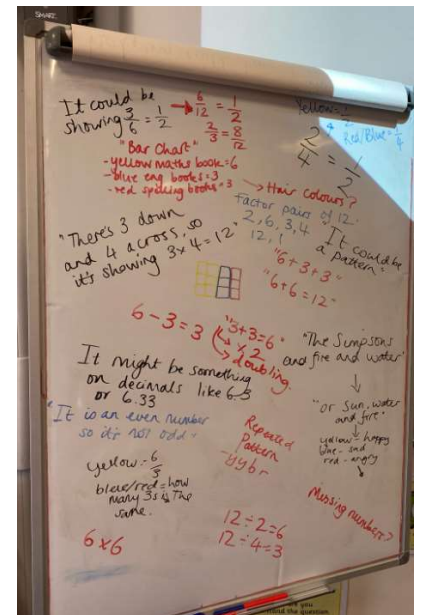 SMART
It could be
showing 3/6 = 1/2
→ 6/12 = 1/2
2/3 = 8/12
"Bar Chart"
-yellow maths book = 6
-blue eng books = 3
-red spelling books = 3
Yellow = 1/2
Red/Blue = 1/4
2/4 = 1/2
→ Hair colours?
Factor pairs of 12
2, 6, 3, 4
12, 1
"There's 3 down
and 4 across, so
it's showing 3x4 = 12"
"It could be
a pattern"
"6+3+3"
"6+6=12"
6 - 3 = 3
"3+3=6"
x 2
doubling.
"The Simpsons
and fire and water"
"or Sun, water
and fire"
yellow - happy
blue - sad
red - angry
It might be something
on decimals like 6.3
or 6.33
"It is an even number
so it's not odd"
Repeated
Pattern
-yyb-
yellow = 6/3
blue/red = how
many 3s is the
same.
Missing numbers?
6x6
12 ÷ 2 = 6
12 ÷ 4 = 3